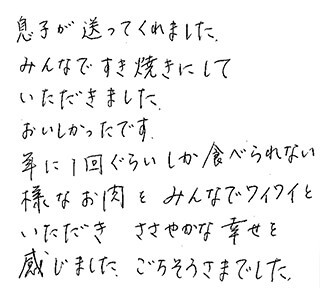 息子が送ってくれました.
みんなですき焼きにして
いただきました.
おいしかったです.
年に1回ぐらいしか食べられない
様なお肉をみんなでワイワイと
いただき ささやかな幸せを
感じました. ごちそうさまでした.